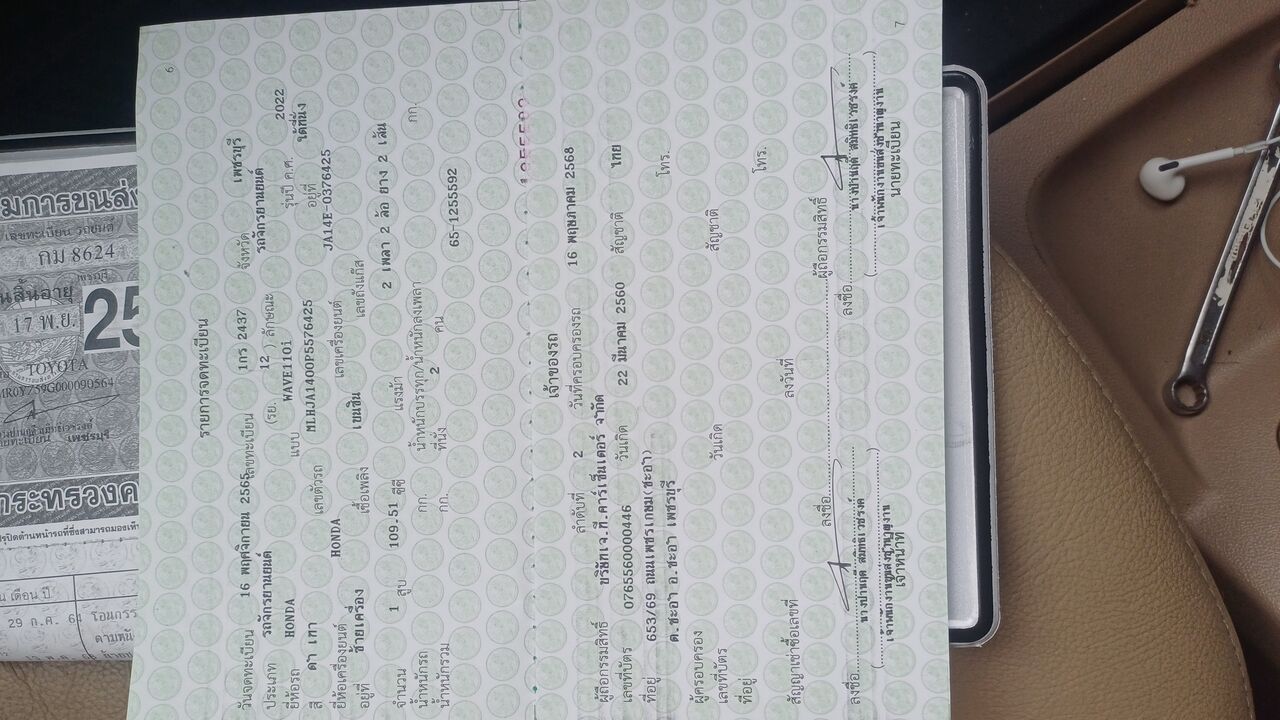 6
รายการจดทะเบียน
วันจดทะเบียน 16 พฤศจิกายน 2565 เลขทะเบียน 1กร 2437 จังหวัด เพชรบุรี
ประเภท รถจักรยานยนต์ (รย. 12 ) ลักษณะ รถจักรยานยนต์
ยี่ห้อรถ HONDA แบบ WAVE110i รุ่นปี ค.ศ. 2022
สี ดำ เทา เลขตัวรถ MLHJA1400P5576425 อยู่ที่ ใต้ที่นั่ง
ยี่ห้อเครื่องยนต์ HONDA เลขเครื่องยนต์ JA14E-0376425
อยู่ที่ ซ้ายเครื่อง เชื้อเพลิง เบนซิน เลขถังแก๊ส
จำนวน 1 สูบ 109.51 ซีซี แรงม้า 2 เพลา 2 ล้อ ยาง 2 เส้น
น้ำหนักรถ กก. น้ำหนักบรรทุก/น้ำหนักลงเพลา กก.
น้ำหนักรวม กก. ที่นั่ง 2 คน 65-1255592
7
เจ้าของรถ
ลำดับที่ 2 วันที่ครอบครองรถ 16 พฤษภาคม 2568
ผู้ถือกรรมสิทธิ์ บริษัทเจ.ที.คาร์เซ็นเตอร์ จำกัด
เลขที่บัตร 0765560000446 วันเกิด 22 มีนาคม 2560 สัญชาติ ไทย
ที่อยู่ 653/69 ถนนเพชรเกษม(ชะอำ)
ต.ชะอำ อ.ชะอำ เพชรบุรี โทร.
ผู้ครอบครอง
เลขที่บัตร วันเกิด สัญชาติ
ที่อยู่
โทร.
สัญญาเช่าซื้อเลขที่ ลงวันที่
ลงชื่อ ผู้ถือกรรมสิทธิ์
ลงชื่อ ลงชื่อ
เจ้าหน้าที่ นายทะเบียน
เลขทะเบียน รถยนต์
กม 8624
เพชรบุรี
17 พ.ย.
25
TOYOTA
เพชรบุรี
29 ก.ค. 6